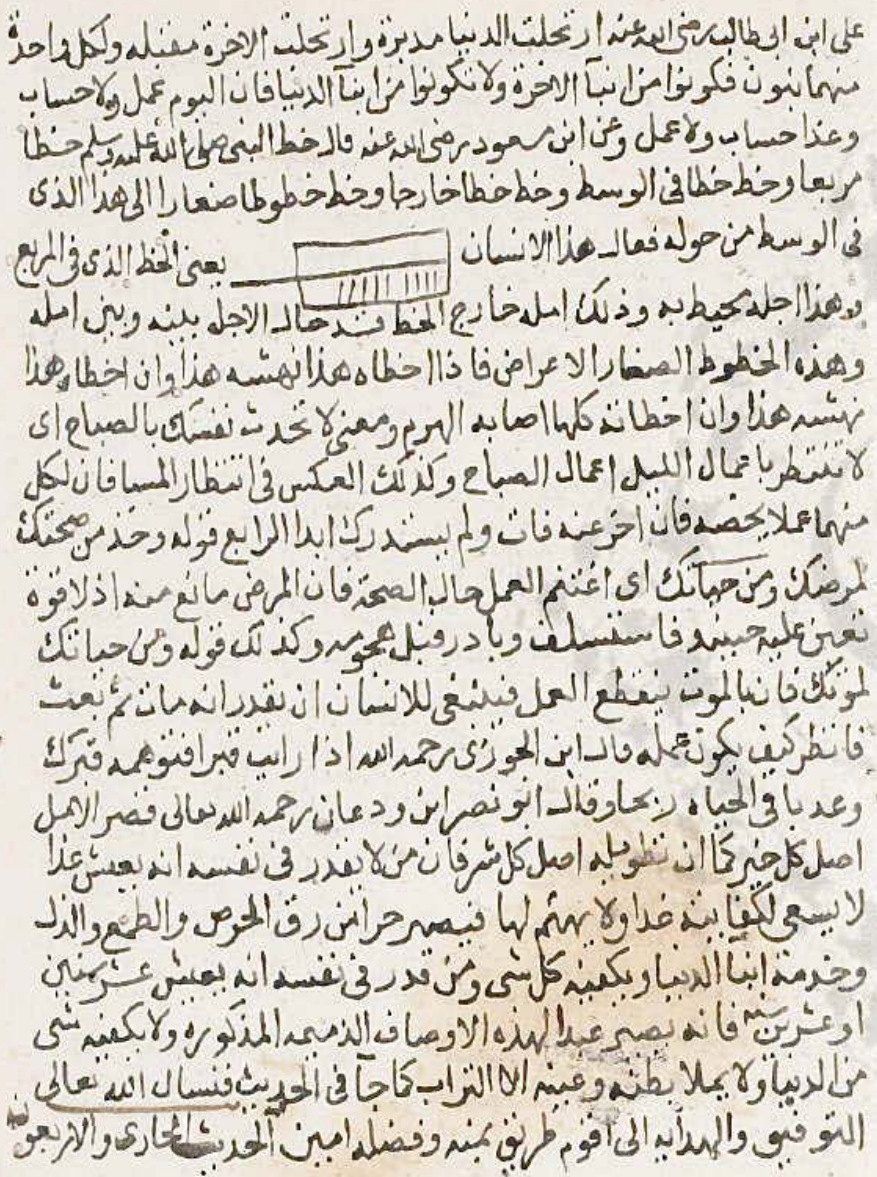 على ابن ابى طالب رضى الله عنه ارتحلت الدنيا مدبرة وارتحلت الاخرة مقبله ولكل واحدة
منهما بنون فكونوا من ابنآ الاخرة ولا تكونوا من ابنآ الدنيا فان اليوم عمل ولا حساب
وغدا حساب ولا عمل وعن ابن مسعود رضى الله عنه قال خط النبى صلى الله عليه وسلم خطا
مربعا وخط خطا فى الوسط وخط خطا خارجا وخط خطوطا صغارا الى هذا الذى
فى الوسط من حوله فقال هذا الانسان يعنى الخط الذى فى المربع
وهذا اجله محيط به وذلك امله خارج الخط قد حال الاجل بينه وبين امله
وهذه الخطوط الصغار الاعراض فاذا اخطاه هذا نهشه هذا وان اخطاه هذا
نهشه هذا وان اخطاته كلها اصابه الهرم ومعنى لا تحدث نفسك بالصباح اى
لا تنتظر باعمال الليل اعمال الصباح وكذلك العكس فى انتظار المسا فان لكل
منهما عملا يخصه فان اخر عنه فات ولم يستدرك ابدا الرابع قوله وخذ من صحتك
لمرضك ومن حياتك اى اغتنم العمل حال الصحة فان المرض مانع منه اذ لا قوة
تعين عليه حينئذ وبادر قبل هجومه وكذلك قوله ومن حياتك
لموتك فان بالموت ينقطع العمل فينبغى للانسان ان يقدر انه مات ثم بعث
فانظر كيف يكون عمله قال ابن الجوزى رحمه الله اذا رايت قبرا فتوهمه قبرك
وعد باقى الحياه ربحا وقال ابو نصر ابن ودعان رحمه الله تعالى قصر الامل
اصل كل خير كما ان تطويله اصل كل شر فان من لا يقدر فى نفسه انه يعيش غدا
لا يسعى لكفايته غدا ولا يهتم لها فيصير حرا من رق الحرص والطمع والذل
وخدمة ابنآ الدنيا ويكفيه كل شى ومن قدر فى نفسه انه يعيش عشر سنين
او عشرين سنه فانه يصير عبدا لهذه الاوصاف الذميمه المذكوره ولا يكفيه شى
من الدنيا ولا يملا بطنه وعينه الا التراب كما جآ فى الحديث فنسال الله تعالى
التوفيق والهدايه الى اقوم طريق بمنه وفضله امين الحديث الحادى والاربعون